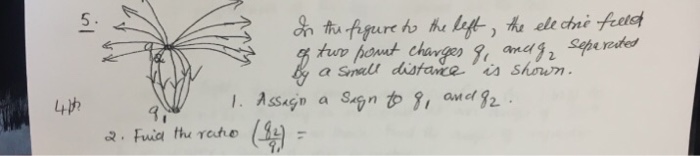 5. In the figure to the left, the electric field
q2 of two point charges q1 and q2 separated
by a small distance is shown.
4pts q1 1. Assign a Sign to q1 and q2.
2. Find the ratio (q2/q1) =